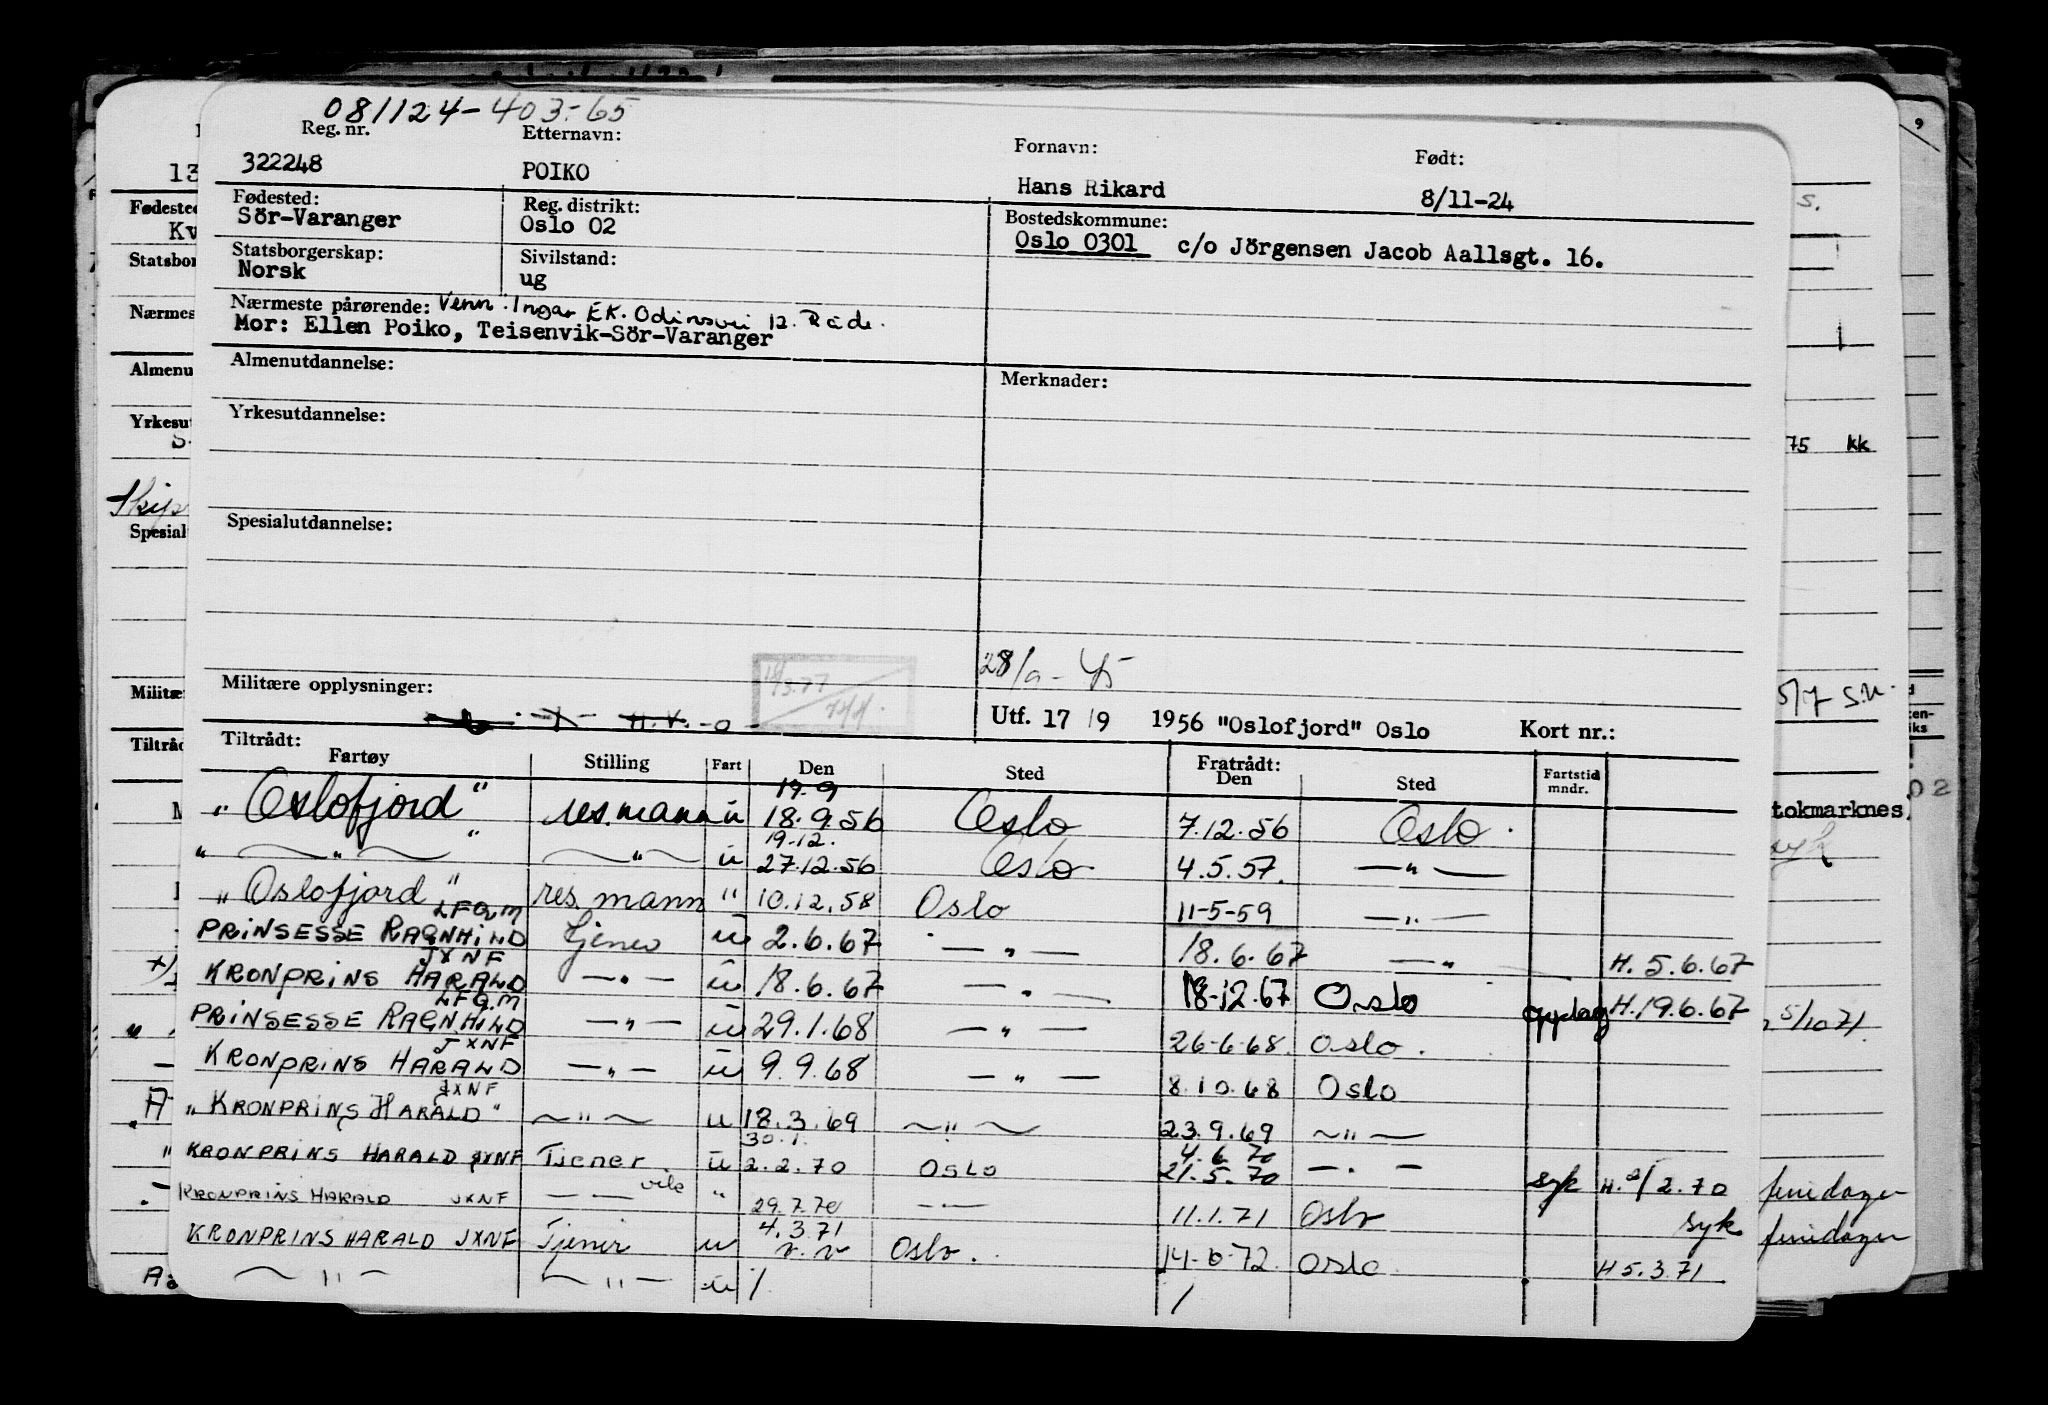 081124-403-65
Reg. nr. Etternavn: Fornavn: Født:
322248 POIKO Hans Rikard 8/11-24
Fødested: Reg. distrikt: Bostedskommune:
Sör-Varanger Oslo 02 Oslo 0301 c/o Jörgensen Jacob Aallsgt. 16.
Statsborgerskap: Sivilstand:
Norsk ug
Nærmeste pårørende: Venn: Ingar EK. Odinsvei 12. Råde.
Mor: Ellen Poiko, Teisenvik-Sör-Varanger
Almenutdannelse: Merknader:
Yrkesutdannelse:
Spesialutdannelse:
Militære opplysninger:
Utf. 17/9 1956 "Oslofjord" Oslo Kort nr.:
Tiltrådt: Fratrådt:
Fartøy Stilling Fart Den Sted Den Sted Fartstid mndr.
17.9
"Oslofjord" res.mann u 18.9.56 Oslo 7.12.56 Oslo.
19.12.
" — " — " — " — u 27.12.56 Oslo 4.5.57. — " —
"Oslofjord" res. mann " 10.12.58 Oslo 11-5-59 — " —
LFQM
PRINSESSE RAGNHILD Tjener u 2.6.67 — " — 18.6.67 — " — H. 5.6.67
JXNF
KRONPRINS HARALD — " — u 18.6.67 — " — 18-12.67 Oslo oppdag H. 19.6.67
LFQM
PRINSESSE RAGNHILD — " — u 29.1.68 — " — 26-6-68. Oslo.
JXNF
KRONPRINS HARALD — " — u 9.9.68 — " — 8.10.68 Oslo
JXNF
"KRONPRINS HARALD" — " — u 18.3.69 — " — 23.9.69 — " —
30.1. 4.6.70
KRONPRINS HARALD JXNF Tjener u 2.2.70 Oslo 21.5.70 — " — syk H. 2/2.70 feriedager
KRONPRINS HARALD JXNF — — vik " 29.7.70 — " — 11.1.71 Oslo syk feriedager
4.3.71
KRONPRINS HARALD JXNF Tjener u Oslo. 14-6-72. Oslo H 5.3.71
— " — — " — u / /